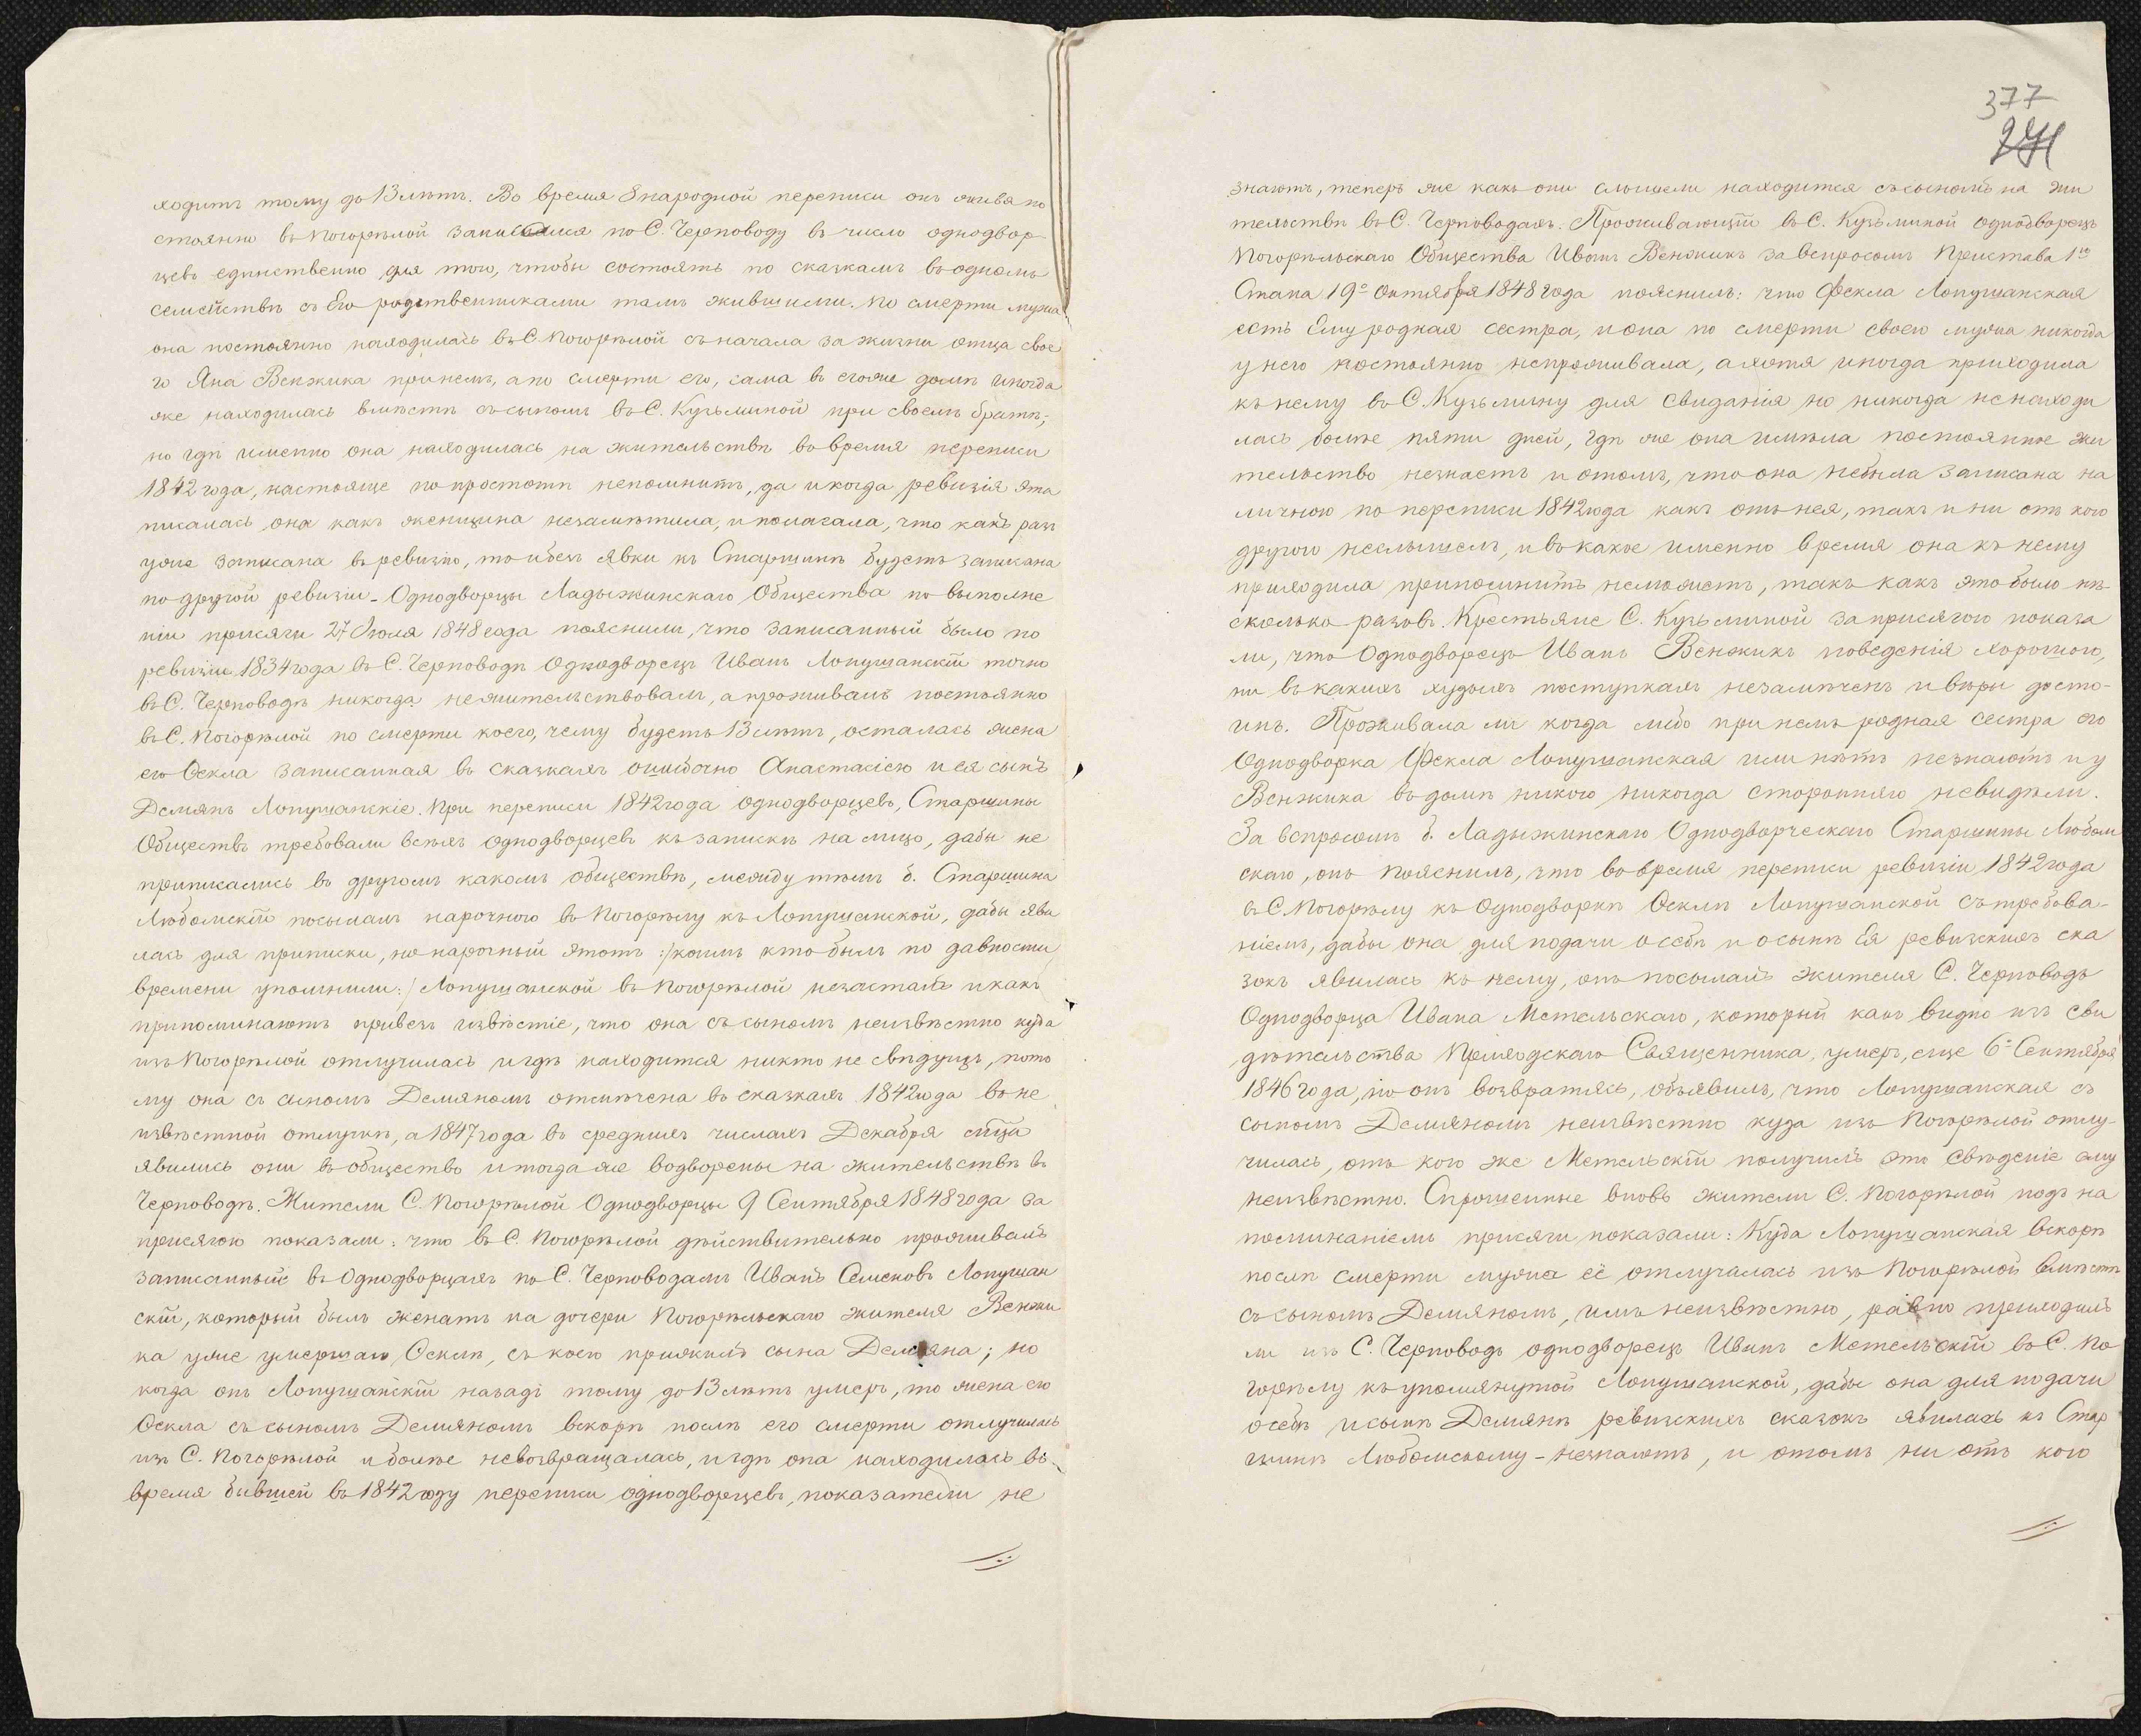 ходитъ тому до 13 лѣтъ. Во время 8 народной переписи онъ живя по
стоянно въ Погорѣлой записался по С. Черповоду въ число однодвор-
цевъ единственно для того, чтобы состоять по сказкамъ въ одномъ
семействѣ съ Его родственниками тамъ жившими. По смерти мужа
она постоянно находилась въ С Погорѣлой съ начала за жизни отца свое
го Яна Венжика при немъ, а по смерти его, сама въ его же домѣ иногда
же находилась вмѣстѣ съ сыномъ въ С. Кузьминой при своемъ братѣ;
но гдѣ именно она находилась на жительствѣ во время переписи
1842 года, настояще по простотѣ непомнитъ, да и когда ревизія эта
писалась она какъ женщина незамѣтила, и полагала, что какъ разъ
уже записана въ ревизію, то и безъ явки къ Старшинѣ будетъ записана
по другой ревизіи – Однодворцы Ладыжинскаго Общества по выполне
ніи присяги 27 Іюля 1848 года пояснили, что записанный было по
ревизіи 1834 года въ С. Черповодѣ Однодворецъ Иванъ Лопушанскій точно
въ С. Черповодѣ никогда нежительствовалъ, а проживалъ постоянно
въ С. Погорѣлой по смерти коего, чему будетъ 13 лѣтъ, осталась жена
его Ѳекла записанная въ сказкахъ ошибочно Анастасіею и ея сынъ
Демянъ Лопушанскіе. При переписи 1842 года однодворцевъ, Старшины
Обществъ требовали всѣхъ однодворцевъ къ запискѣ на лицо, дабы не
приписались въ другомъ какомъ обществѣ, между тѣмъ б. Старшина
Любомскій посылалъ нарочного въ Погорѣлу къ Лопушанской, дабы яви
лась для приписки, но нарочный этотъ :/ коимъ кто былъ по давности
времени упомнили: / Лопушанской въ Погорѣлой незасталъ и какъ
припоминаютъ привезъ извѣстіе, что она съ сыномъ неизвѣстно куда
изъ Погорѣлой отлучилась и гдѣ находится никто не свѣдущъ, пото
му она съ сыномъ Демяномъ отмѣчена въ сказкахъ 1842 года въ не
извѣстной отлучкѣ, а 1847 года въ среднихъ числахъ Декабря м-ца
явились они въ общество и тогда же водворены на жительствѣ въ
Черповодѣ. Жители С. Погорѣлой Однодворцы 9 Сентября 1848 года за
присягою показали: что въ С. Погорѣлой дѣйствительно проживалъ
записанный въ Однодворцахъ по С. Черповодамъ Иванъ Семеновъ Лопушан
скій, который былъ женатъ на дочери Погорѣльскаго жителя Венжи
ка уже умершаго Ѳеклѣ, съ коею прижилъ сына Демяна; но
когда онъ Лопушанскій назадъ тому до 13 лѣтъ умеръ, то жена его
Ѳекла съ сыномъ Демяномъ вскорѣ послѣ его смерти отлучилась
изъ С. Погорѣлой и болѣе невозвращалась, и гдѣ она находилась въ
время бывшей въ 1842 году переписи однодворцевъ, показатели не
377
знаютъ, теперь же какъ они слышели находится съ сыномъ на жи
тельствѣ въ С. Черповодахъ. Проживающій въ С. Кузьминой однодворецъ
Погорѣльскаго Общества Иванъ Венжикъ за вспросомъ Пристава 1го
Стана 19го Октября 1848 года пояснилъ: что Фекла Лопушанская
есть Ему родная сестра, и она по смерти своего мужа никогда
у него постоянно непроживала, а хотя иногда приходила
къ нему въ С. Кузьмину для свиданія но никогда ненаходи
лась болѣе пяти дней, гдѣ же она имѣла постоянное жи
тельство незнаетъ и о томъ, что она небыла записана на
личною по переписи 1842 года какъ отъ нея, такъ и ни отъ кого
другого неслышелъ, и въ какое именно время она къ нему
приходила припомнить неможетъ, такъ какъ это было нѣ-
сколько разовъ. Крестьяне С. Кузьминой за присягою показа
ли, что Однодворецъ Иванъ Венжикъ поведенія хорошого,
ни въ какихъ худыхъ поступкахъ незамѣченъ и вѣры досто-
инъ. Проживала ли когда либо при немъ родная сестра его
Однодворка Фекла Лопушанская или нѣтъ незнаютъ и у
Венжика въ домѣ никого никогда сторонняго невидѣли.
За вспросомъ б. Ладыжинскаго Однодворческаго Старшины Любом
скаго, онъ пояснилъ, что во время переписи ревизіи 1842 года
въ С Погорѣлу къ Однодворкѣ Ѳеклѣ Лопушанской съ требова-
ніемъ, дабы она для подачи о себѣ и о сынѣ Ея ревизскихъ ска
зокъ явилась къ нему, онъ посылалъ жителя С. Черповодъ
Однодворца Ивана Метельскаго, который какъ видно изъ сви
дѣтельства Приходскаго Священника, умеръ, еще 6го Сентября
1846 года, но онъ возвратясь, объявилъ, что Лопушанская съ
сыномъ Демяномъ неизвѣстно куда изъ Погорѣлой отлу-
чилась, отъ кого же Метельскій получилъ это свѣденіе ему
неизвѣстно. Спрошенные вновь жители С. Погорѣлой подъ на
поминаніемъ присяги показали: Куда Лопушанская вскорѣ
послѣ смерти мужа её отлучалась изъ Погорѣлой вмѣстѣ
съ сыномъ Демяномъ, имъ неизвѣстно, равно приходилъ
ли изъ С. Черповодъ однодворецъ Иванъ Метельскій въ С. По
горѣлу къ упомянутой Лопушанской, дабы она для подачи
о себѣ и сынѣ Демянѣ ревизскихъ сказокъ явилась къ Стар
шинѣ Любомскому – незнаютъ, и о томъ ни отъ кого